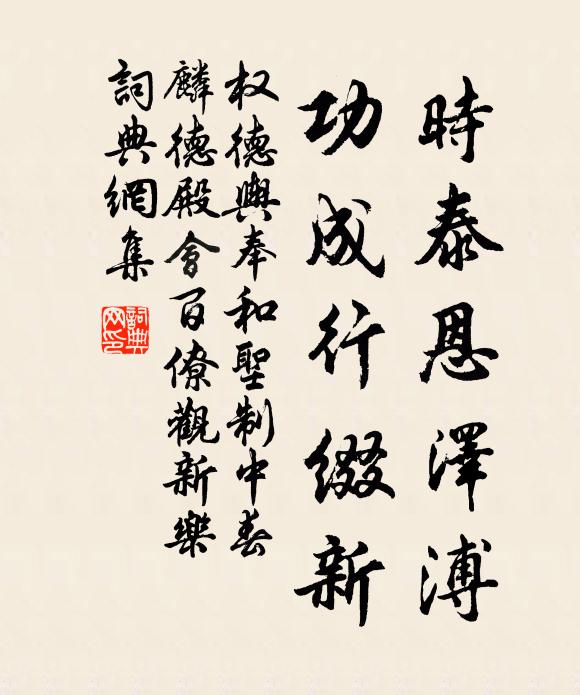 時泰恩澤溥
功成行綴新
权德輿奉和聖制中春
麟德殿會百僚觀新樂
詞典網集
詞典网印